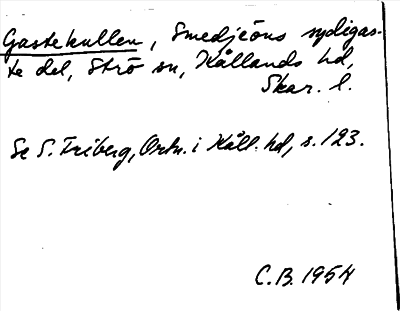 Gastekullen, Smedjeöns sydligas-
te del, Strö sn, Kållands hd,
Skar. l.
Se S. Friberg, Ortn. i Kåll. hd, s. 123.
C.B. 1954